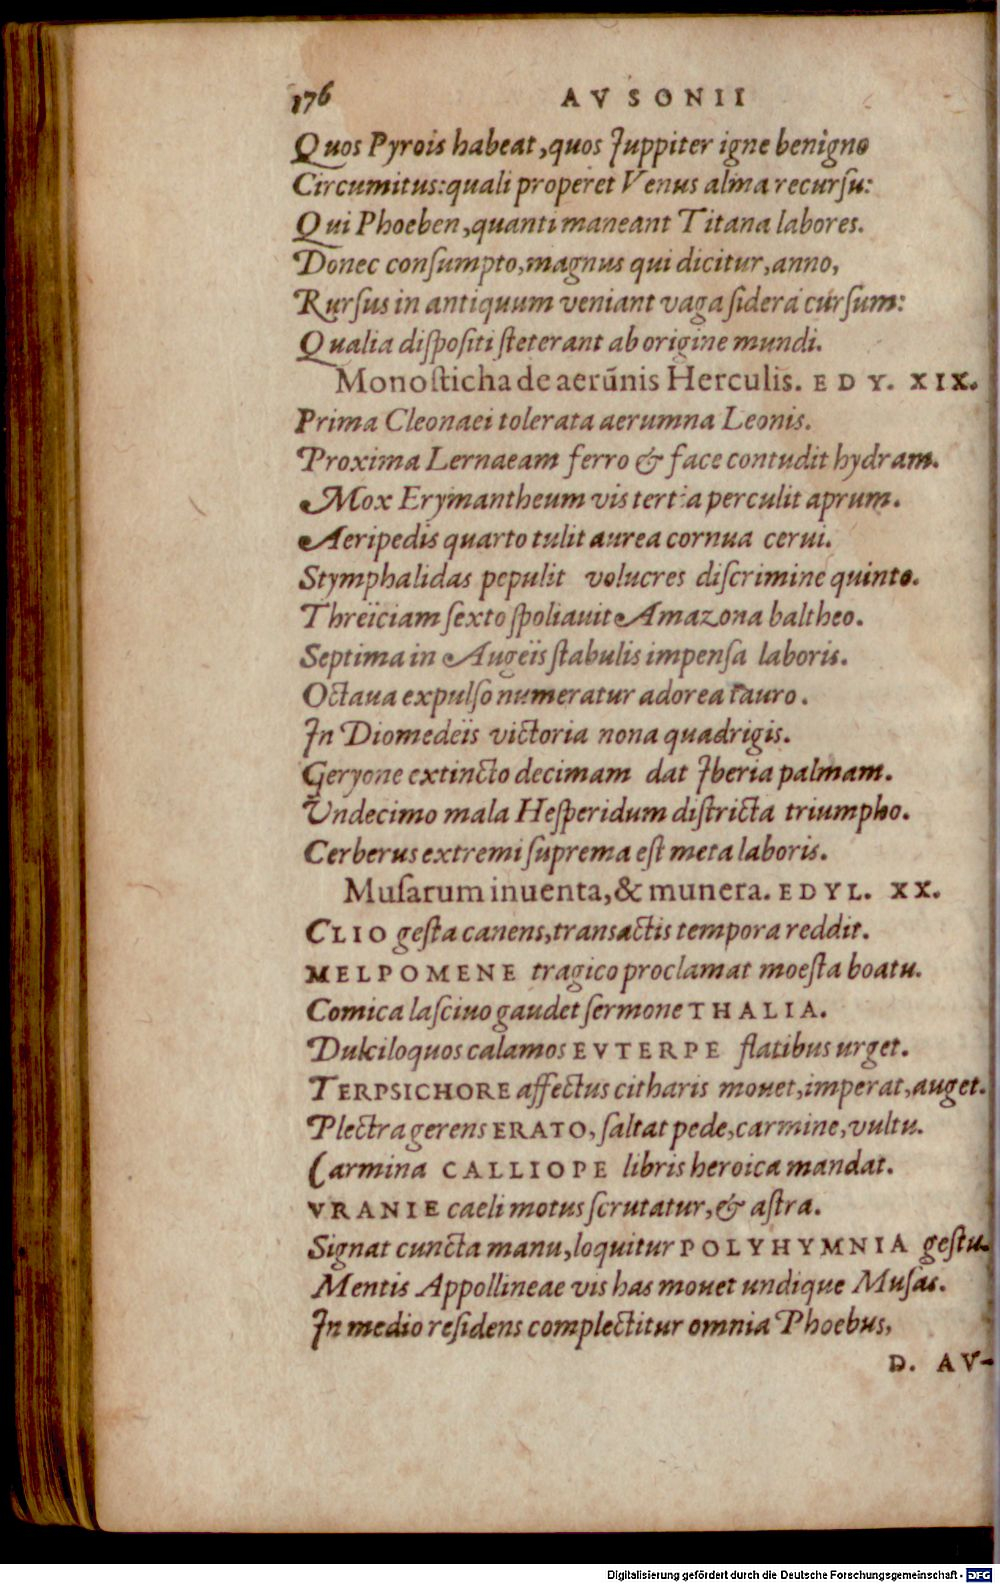 176 AVSONII
Quos Pyrois habeat, quos Juppiter igne benigno
Circumitus: quali properet Venus alma recursu:
Qui Phoeben, quanti maneant Titana labores.
Donec consumpto, magnus qui dicitur, anno,
Rursus in antiquum veniant vaga sidera cursum:
Qualia dispositi steterant ab origine mundi.
Monosticha de aerūnis Herculis. EDY. XIX.
Prima Cleonaei tolerata aerumna Leonis.
Proxima Lernaeam ferro & face contudit hydram.
Mox Erymantheum vis tertia perculit aprum.
Aeripedis quarto tulit aurea cornua cerui.
Stymphalidas pepulit volucres discrimine quinto.
Threïciam sexto spoliauit Amazona baltheo.
Septima in Augeïs stabulis impensa laboris.
Octaua expulso numeratur adorea tauro.
In Diomedeïs victoria nona quadrigis.
Geryone extincto decimam dat Iberia palmam.
Vndecimo mala Hesperidum districta triumpho.
Cerberus extremi suprema est meta laboris.
Musarum inuenta, & munera. EDYL. XX.
CLIO gesta canens, transactis tempora reddit.
MELPOMENE tragico proclamat moesta boatu.
Comica lasciuo gaudet sermone THALIA.
Dulciloquos calamos EVTERPE flatibus urget.
TERPSICHORE affectus citharis mouet, imperat, auget.
Plectra gerens ERATO, saltat pede, carmine, vultu.
Carmina CALLIOPE libris heroica mandat.
VRANIE caeli motus scrutatur, & astra.
Signat cuncta manu, loquitur POLYHYMNIA gestu.
Mentis Appollineae vis has mouet undique Musas.
In medio residens complectitur omnia Phoebus,
D. AV-
Digitalisierung gefördert durch die Deutsche Forschungsgemeinschaft - DFG